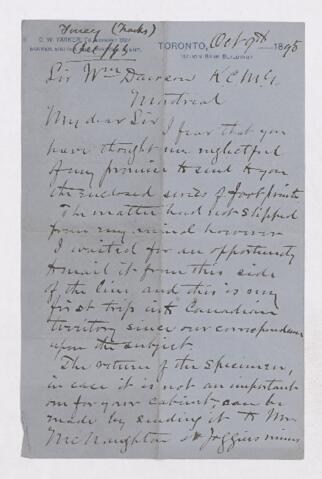 (Tracks)
TORONTO, Oct 9th 1895
Sir Wm Dawson K C M G
Montreal
My dear Sir
I fear that you
have thought me neglectful
of my promise to send to you
the enclosed series of footprints
The matter had not slipped
from my mind however
I waited for an opportunity
to mail it from this side
of the line and this is my
first trip into Canadian
territory since our correspondence
upon the subject.
The return of the specimen,
in case it is not an important
one for your cabinet can be
made by sending it to Mr
McNaughton at Joggins mines